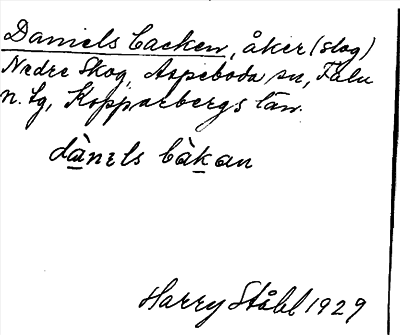 Daniels backen, åker (slog)
Nedre Skog, Aspeboda sn, Falu
n. tg, Kopparbergs län.
dànɛls bàkan
Harry Ståhl 1929